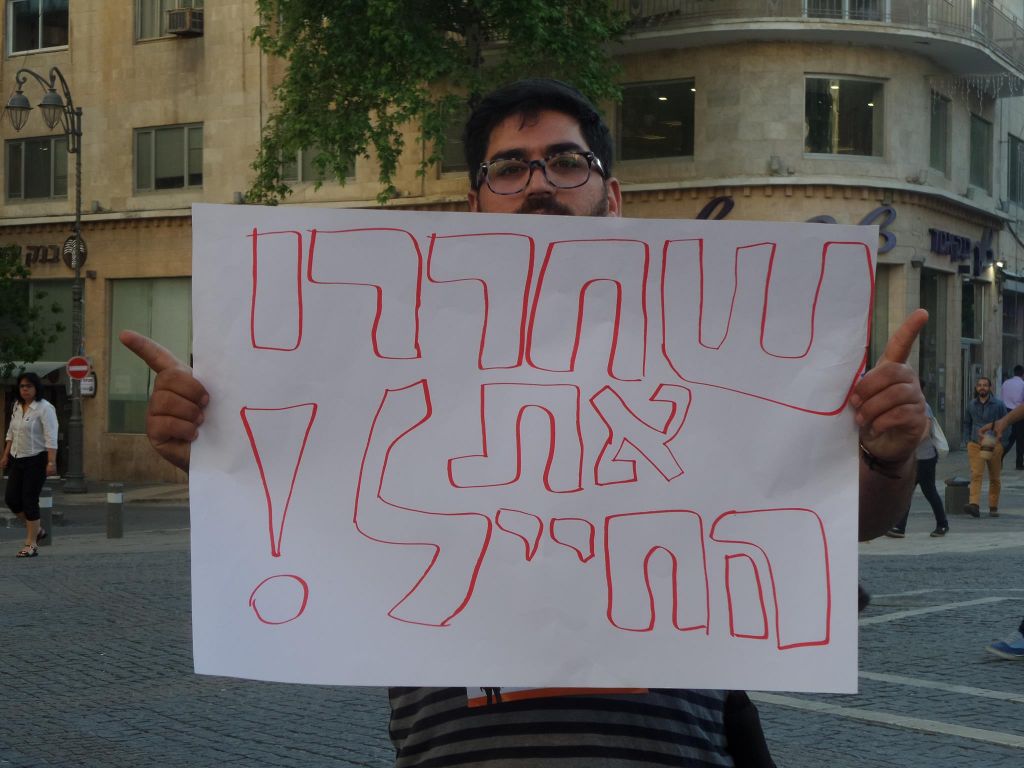 שחררו
את
החייל!
בנק